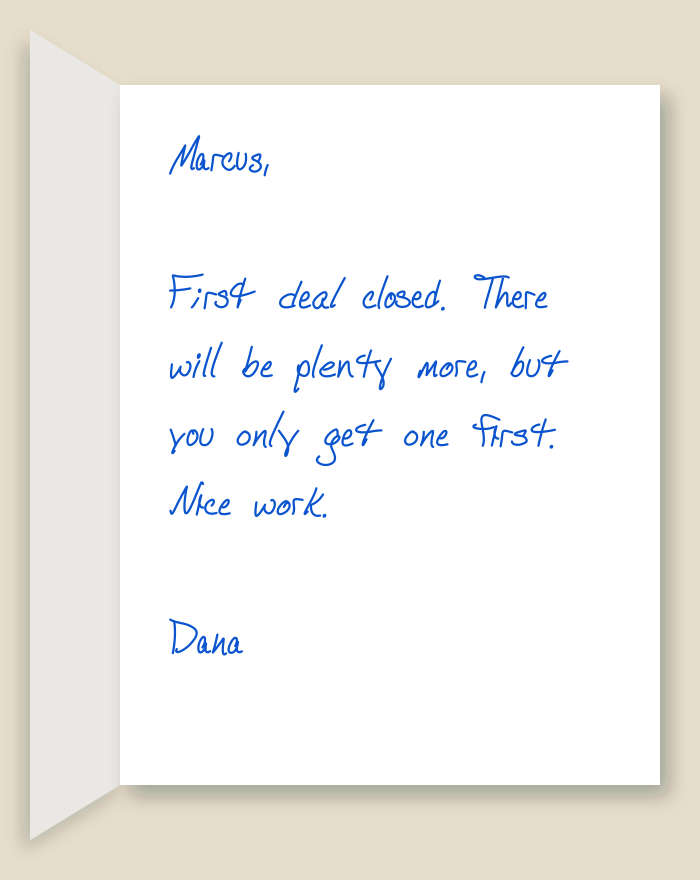 Marcus,
First deal closed. There
will be plenty more, but
you only get one first.
Nice work.
Dana